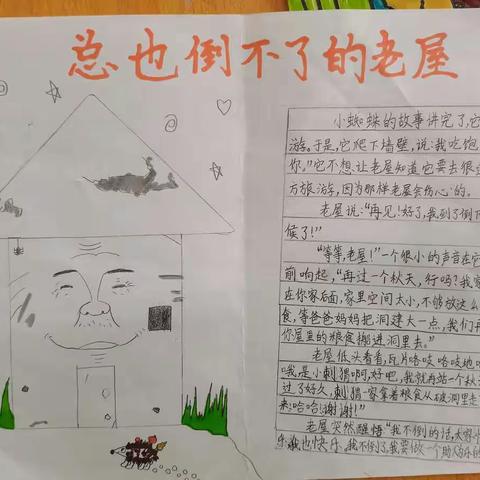 总也倒不了的老屋
小蜘蛛的故事讲完了,它
游。于是,它爬下墙壁,说:我吃饱
你。”它不想让老屋知道它要去很
方旅游,因为那样老屋会伤心的。
老屋说:“再见!好了,我到了倒下
候了!”
“等等,老屋!”一个很小的声音在它
前响起,“再过一个秋天,行吗?我家
在你家后面,家里空间太小,不够放这么
食,等爸爸妈妈把洞建大一点,我们再
你屋里的粮食挪进洞里去。”
老屋低头看看,瓦片咯吱咯吱地
“哦,是小刺猬啊,好吧,我就再站一个秋
过了好久,刺猬一家拿着粮食从破洞里走
来:哈哈!谢谢!”
老屋突然醒悟“我不倒的话,大家
乐,我也快乐,我不倒了,我要做一个助人的